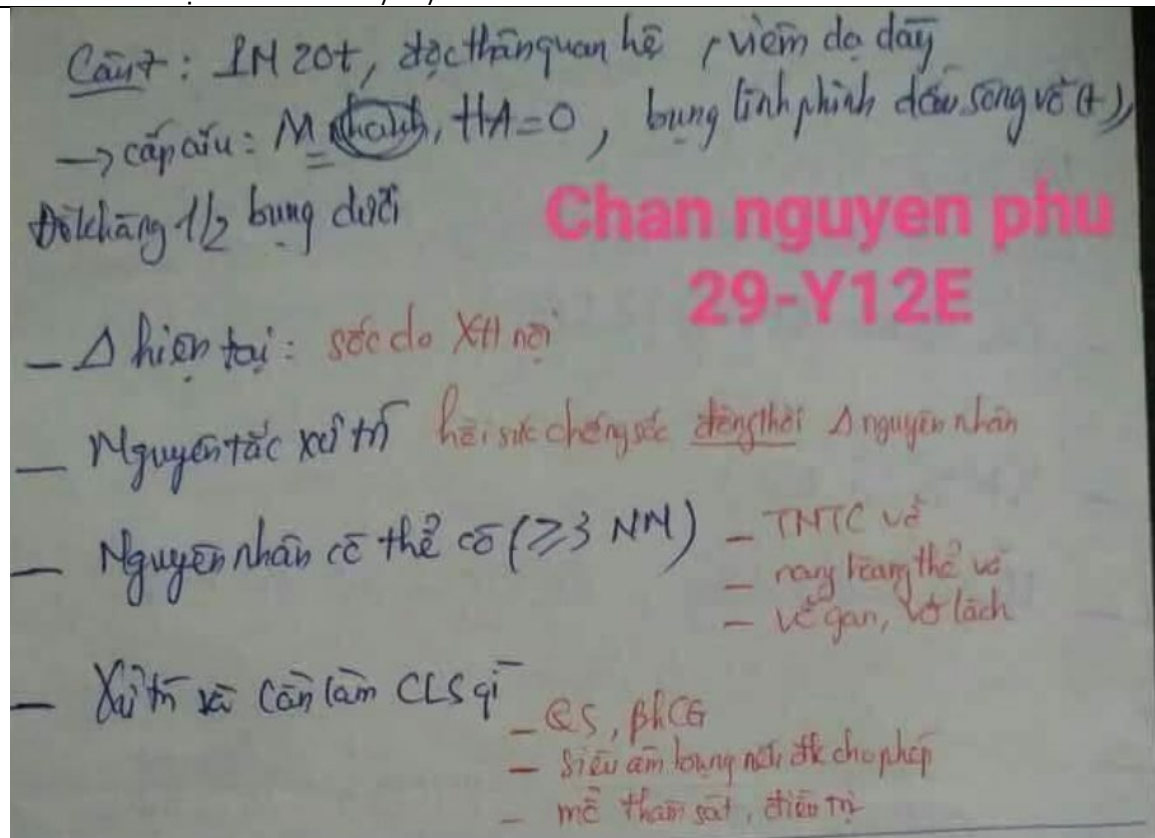 Câu 7: 1N 20t, độc thân quan hệ, viêm dạ dày
→ cấp cứu: M, HA=0, bụng linh phình dấu sóng vỗ (+),
Đề kháng 1/2 bụng dưới
Chan nguyen phu
29-Y12E
- Δ hiện tại: sốc do XH nội
- Nguyên tắc xử trí hồi sức chống sốc đồng thời Δ nguyên nhân
- Nguyên nhân có thể có (≥3 NN) - TNTC vỡ
- nang hoàng thể vỡ
- vỡ gan, vỡ lách
- Xử trí và cần làm CLS gì
- QS, βhCG
- Siêu âm bụng nếu đk cho phép
- mổ thám sát, điều trị